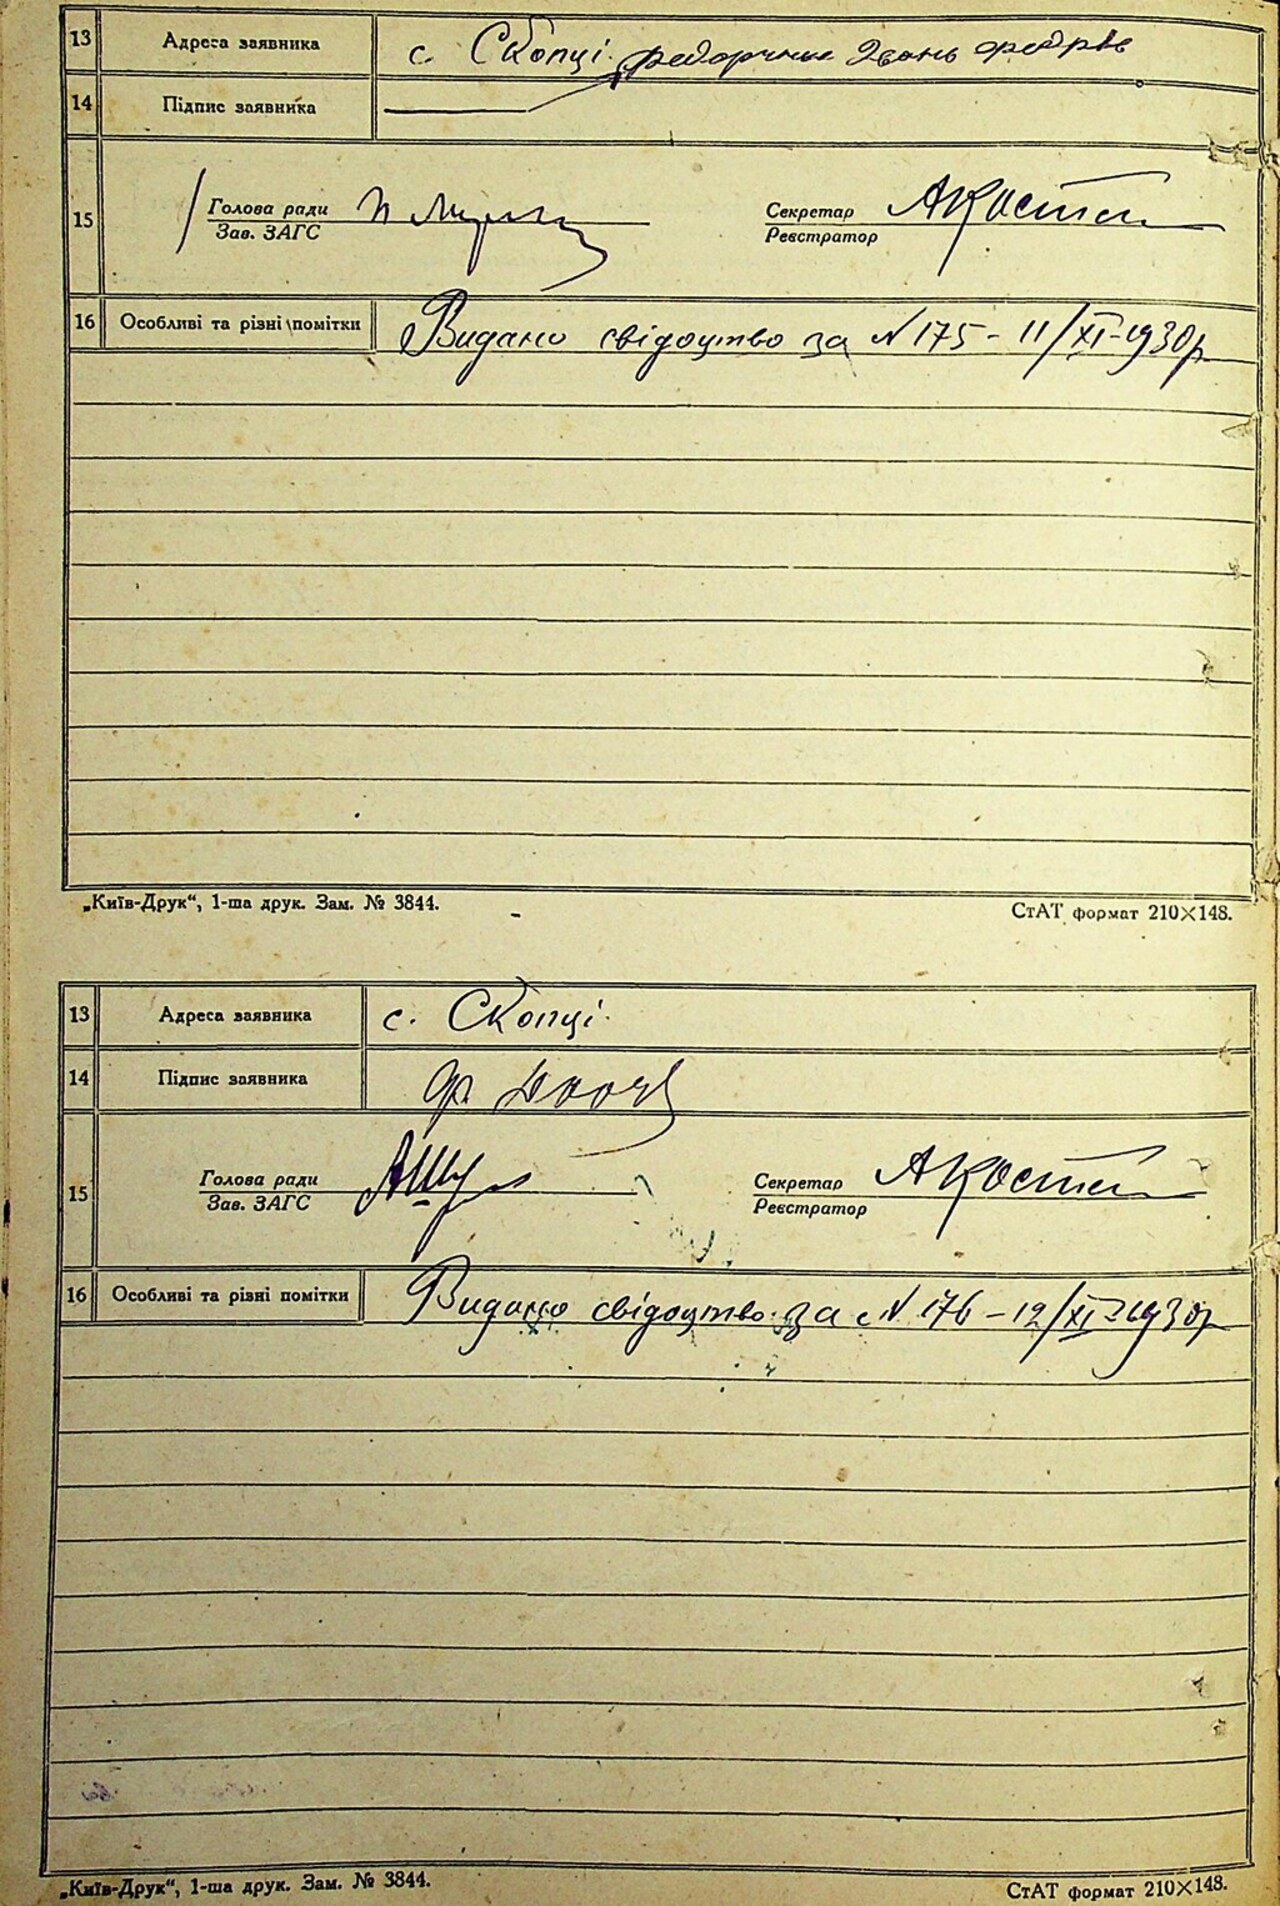 13 Адреса заявника с. Скопці.
14 Підпис заявника
15 Голова ради Секретар
Зав. ЗАГС Реєстратор
16 Особливі та різні помітки Видано свідоцтво за № 175 - 11/XI-1930р
„Київ-Друк“, 1-ша друк. Зам. № 3844. СтАТ формат 210×148.
13 Адреса заявника с. Скопці.
14 Підпис заявника
15 Голова ради Секретар
Зав. ЗАГС Реєстратор
16 Особливі та різні помітки Видано свідоцтво за № 176 - 12/XI-1930р
„Київ-Друк“, 1-ша друк. Зам. № 3844. СтАТ формат 210×148.